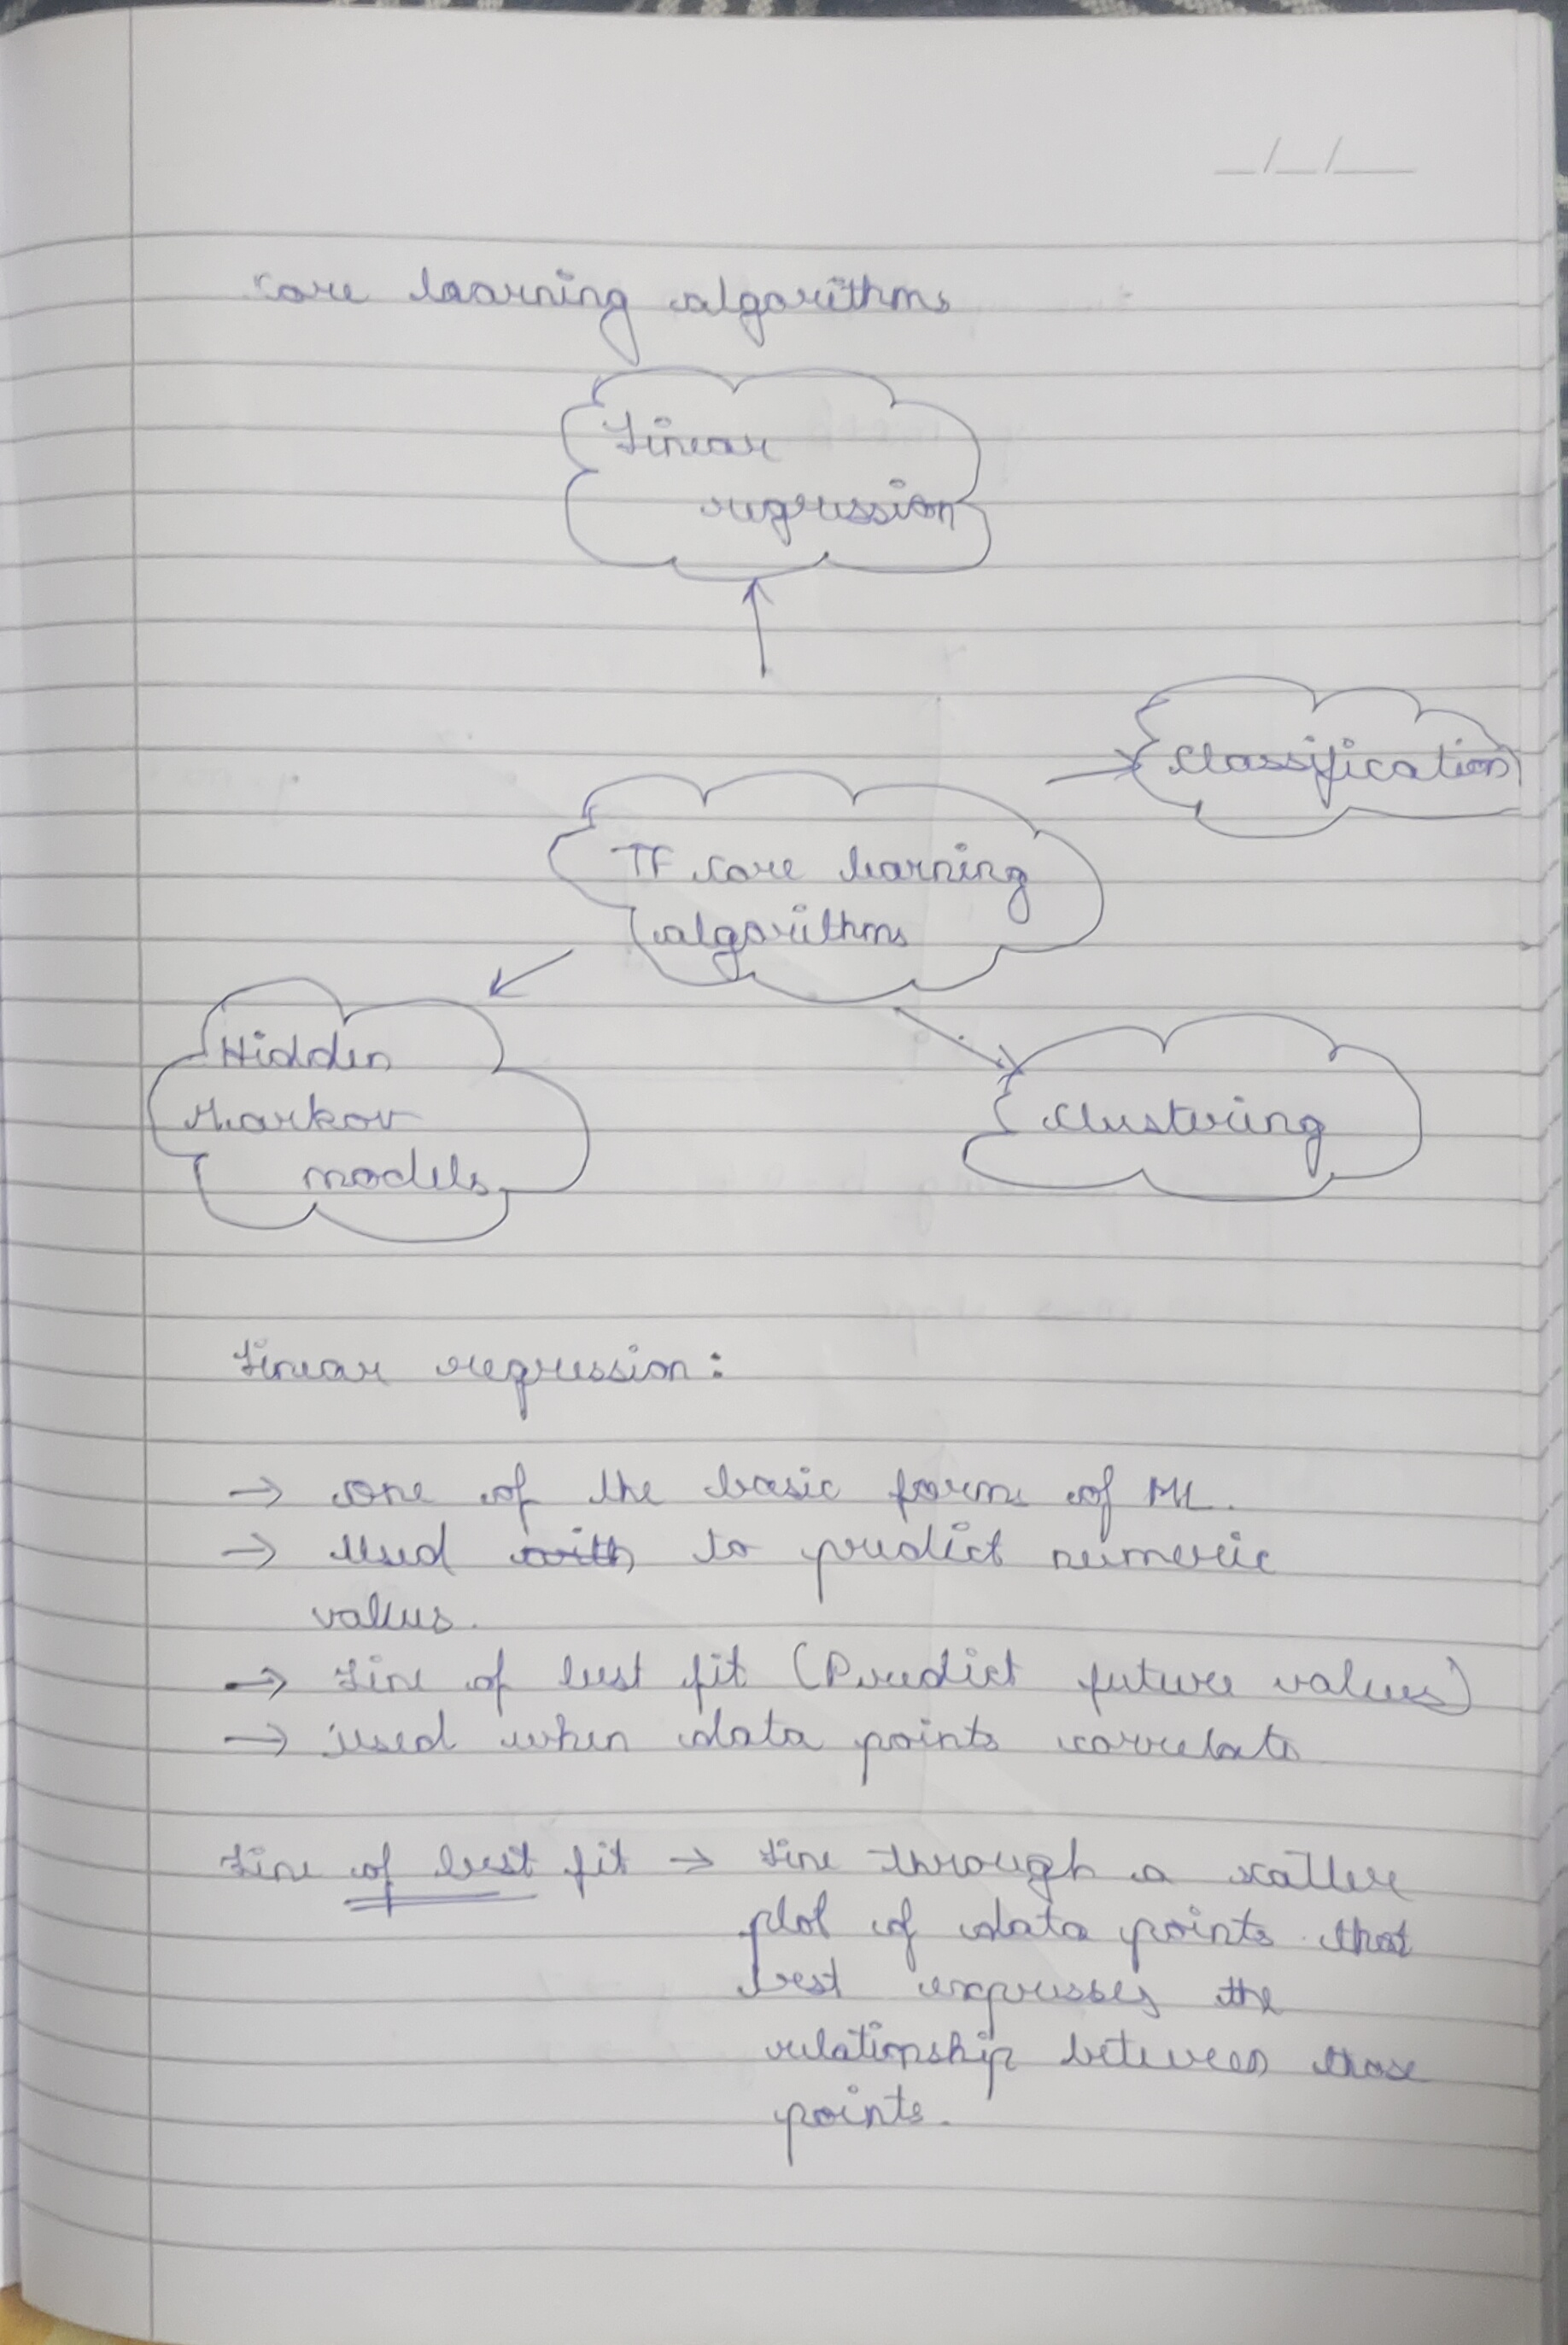 core learning algorithms
Linear
regression
Classification
TF core learning
algorithms
Hidden
Markov
models
Clustering
Linear regression:
→ One of the basic form of ML.
→ Used with to predict numeric
values.
→ Line of best fit (Predict future values)
→ Used when data points correlate
Line of best fit → Line through a scatter
plot of data points that
best expresses the
relationship between those
points.